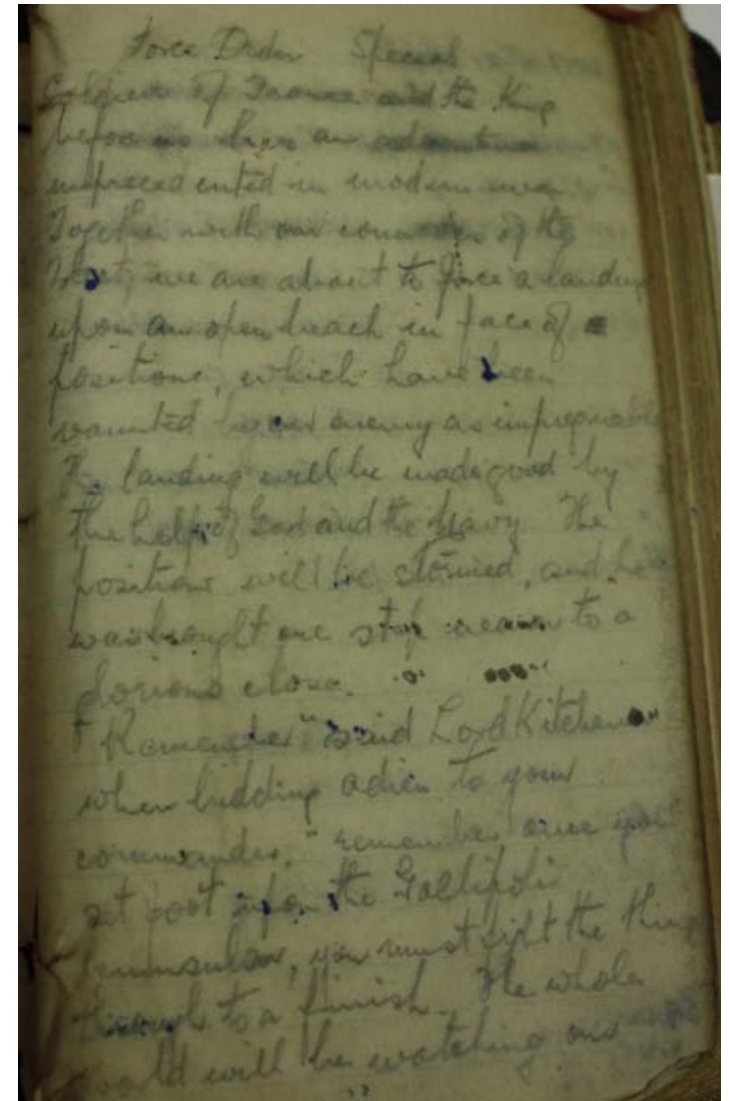 Force Order Special
Soldiers of France and the King
before us lies an adventure
unprecedented in modern war
Together with our comrades of the
Fleet, we are about to force a landing
upon an open beach in face of
positions, which have been
vaunted by our enemy as impregnable
The landing will be made good by
the help of God and the Navy The
positions will be stormed, and the
war brought one step nearer to a
glorious close.
"Remember" said Lord Kitchener
when bidding adieu to your
commander, "remember once you
set foot upon the Gallipoli
Peninsular, you must fight the thing
through to a finish. The whole
world will be watching our